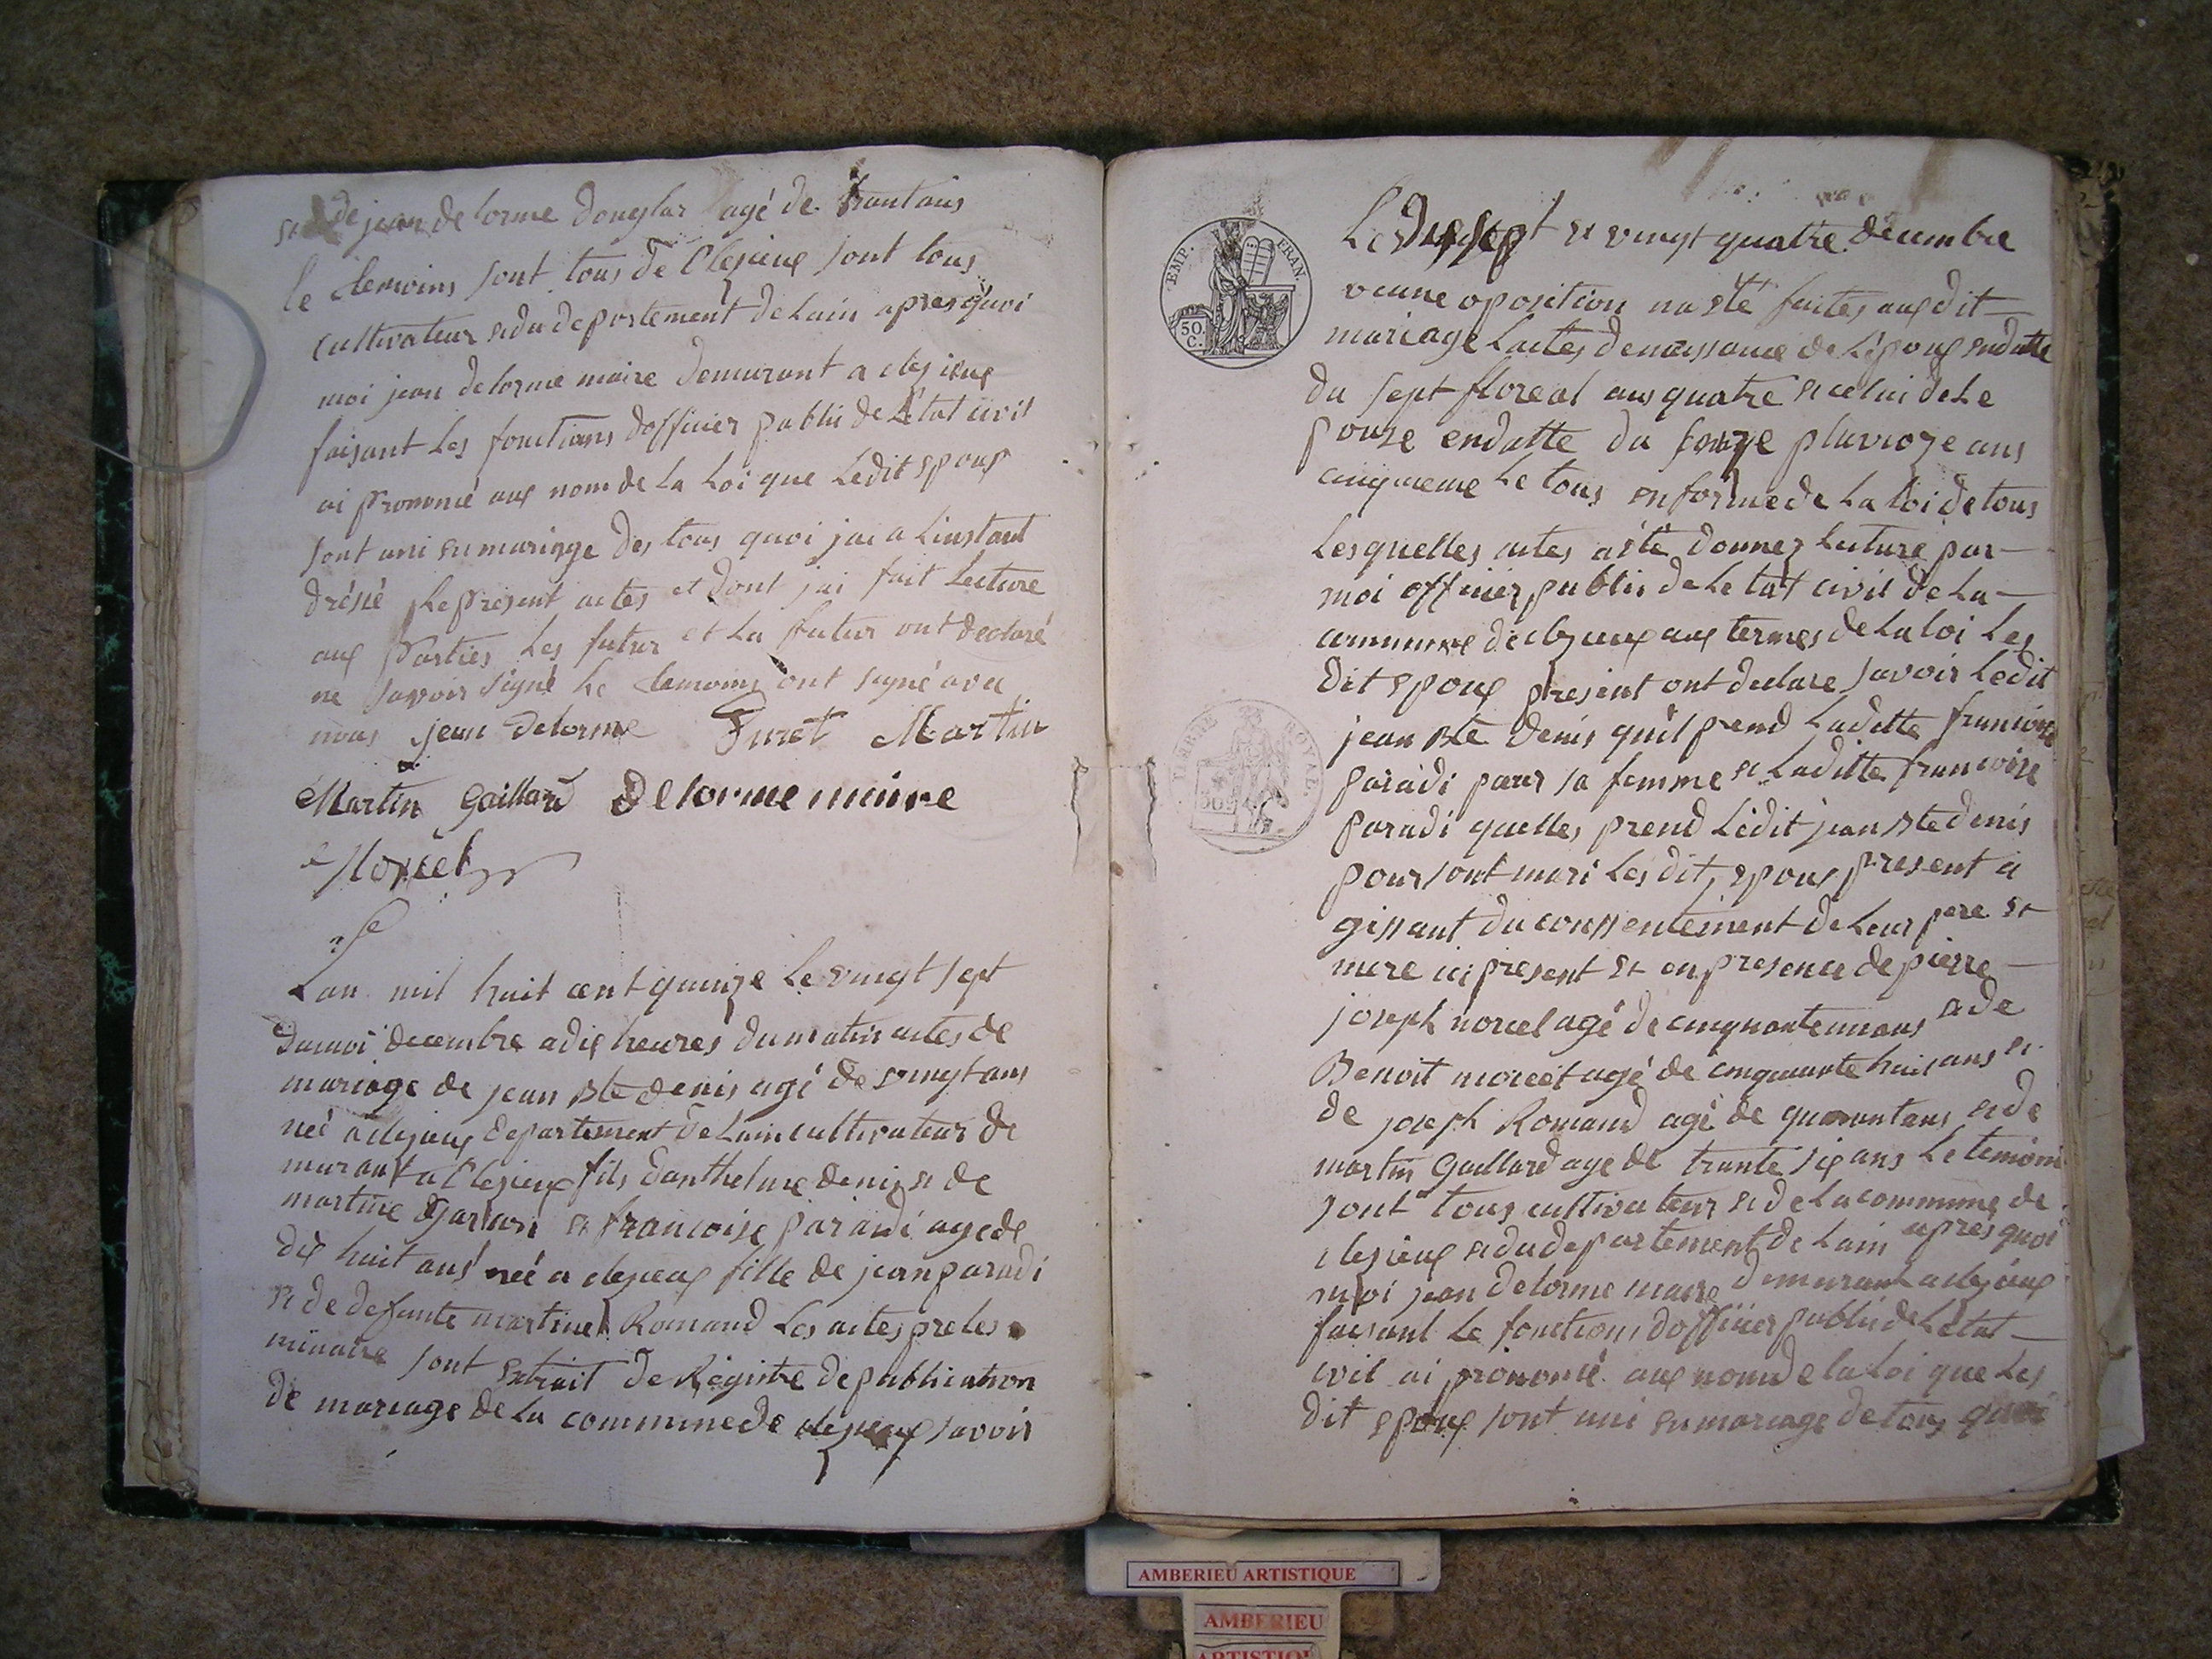 et de jean de lorme donglas agé de trant ans
le temoins sont tous de Clezieux sont tous
cultivateur et du departement de Lain apres quoi
moi jean delorme maire demurant a clezieux
faisant les fonctions dofficier public de L'état civil
ai prononcé aux nom de la Loi que Ledit epoux
sont uni en mariage des tous quoi jai a Linstant
drésié le present actes et dont jai fait Lecture
aux parties Les futur et La futur ont declaré
né savoir signé Le temoins ont signé avec
nous jean delorme Furet Martin
Martin Gaillard Delorme maire
Morcel
Lan mil huit cent quinze Le vingt sept
du moi decembre a dix heures du matin actes de
mariage de jean Bte denis agé de vingt ans
néé a clezieux departement de Lain cultivateur de
murant a Clezieux fils danthelme denis et de
martine et francoise paradi age de
dix huit ans néé a clezieux fille de jean paradi
et de defunte martine Romand Les actes preles
minaire sont Extrait de Régistre de publication
de mariage de La commune de clezieux savoir
TIMP. FRAN.
50. C.
Le Dix sept et vingt quatre decembre
ocune oposition na été faites aux dit
mariage Lactes de naissance de L'époux en datte
du sept floreal ans quatre et celui de Le
pouse en datte du pluvioze ans
cinquieme Le tous en forme de La loi de tous
Lesquelles actes a été donnez Lecture par
moi officier public de Le tat civil de La
commune de clezieux aux termes de La loi Les
Dit epoux present ont declare savoir Ledit
TIMBRE ROYAL
50
jean Bte denis quil prend Laditte francoise
paradi pour sa femme et Laditte francoise
paradi quelles prend Lédit jean Bte denis
pour sont mari Les dit epoux present a
gissant du conssentement de Leur pere et
mere ici present et en presence de pierre
joseph morcel agé de cinquante un ans et de
Benoit morcel agé de cinquante huit ans et
de joseph Romand agé de quarant ans et de
martin Gaillard age de trante six ans Le temoins
sont tous cultivateur et de La commune de
clezieux et du departement de Lain apres quoi
moi jean delorme maire demurant a clezieux
faisant Le fonctions dofficier public de L'état
civil ai prononcé aux nom de la Loi que Les
dit epoux sont uni en mariage de tous quoi
AMBERIEU ARTISTIQUE
AMBERIEU
ARTISTIQUE